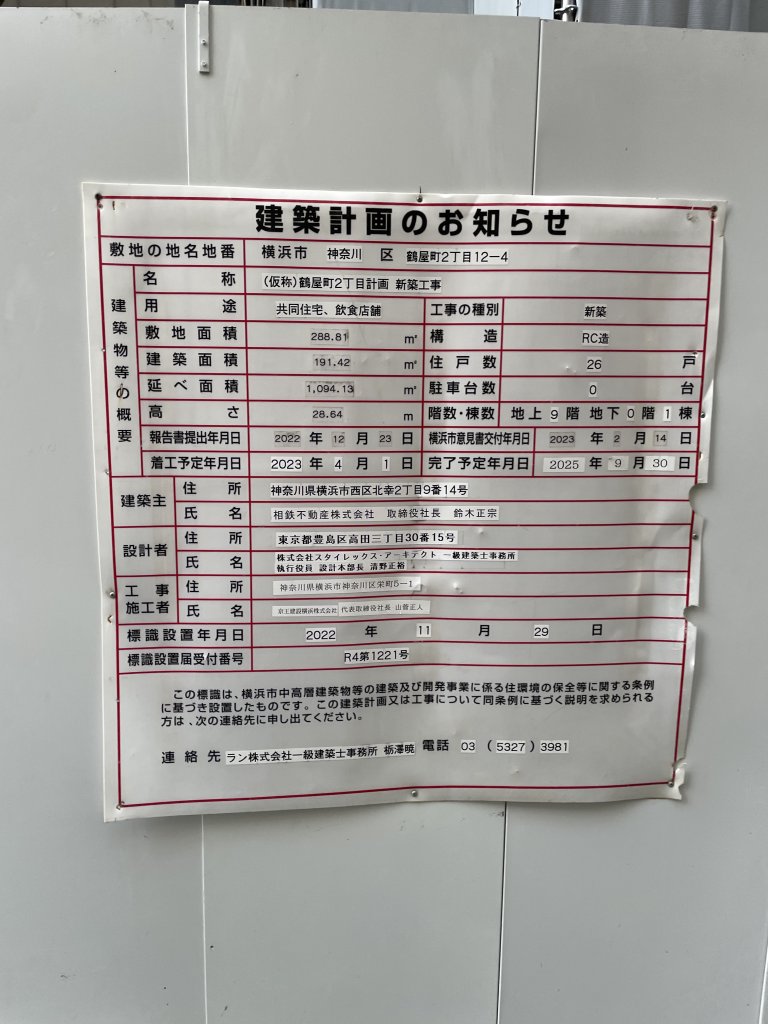 建築計画のお知らせ
敷地の地名地番 横浜市 神奈川 区 鶴屋町2丁目12−4
建築物等の概要
名称 (仮称)鶴屋町2丁目計画 新築工事
用途 共同住宅、飲食店舗 工事の種別 新築
敷地面積 288.81 ㎡ 構造 RC造
建築面積 191.42 ㎡ 住戸数 26 戸
延べ面積 1,094.13 ㎡ 駐車台数 0 台
高さ 28.64 m 階数・棟数 地上 9 階 地下 0 階 1 棟
報告書提出年月日 2022 年 12 月 23 日 横浜市意見書交付年月日 2023 年 2 月 14 日
着工予定年月日 2023 年 4 月 1 日 完了予定年月日 2025 年 9 月 30 日
建築主 住所 神奈川県横浜市西区北幸2丁目9番14号
氏名 相鉄不動産株式会社 取締役社長 鈴木正宗
設計者 住所 東京都豊島区高田三丁目30番15号
氏名 株式会社スタイレックス・アーキテクト 一級建築士事務所
執行役員 設計本部長 清野正裕
工事施工者 住所 神奈川県横浜市神奈川区栄町5−1
氏名 京王建設横浜株式会社 代表取締役社長 山菅正人
標識設置年月日 2022 年 11 月 29 日
標識設置届受付番号 R4第1221号
この標識は、横浜市中高層建築物等の建築及び開発事業に係る住環境の保全等に関する条例
に基づき設置したものです。この建築計画又は工事について同条例に基づく説明を求められる
方は、次の連絡先に申し出てください。
連絡先 ラン株式会社一級建築士事務所 栃澤暁 電話 03 (5327) 3981